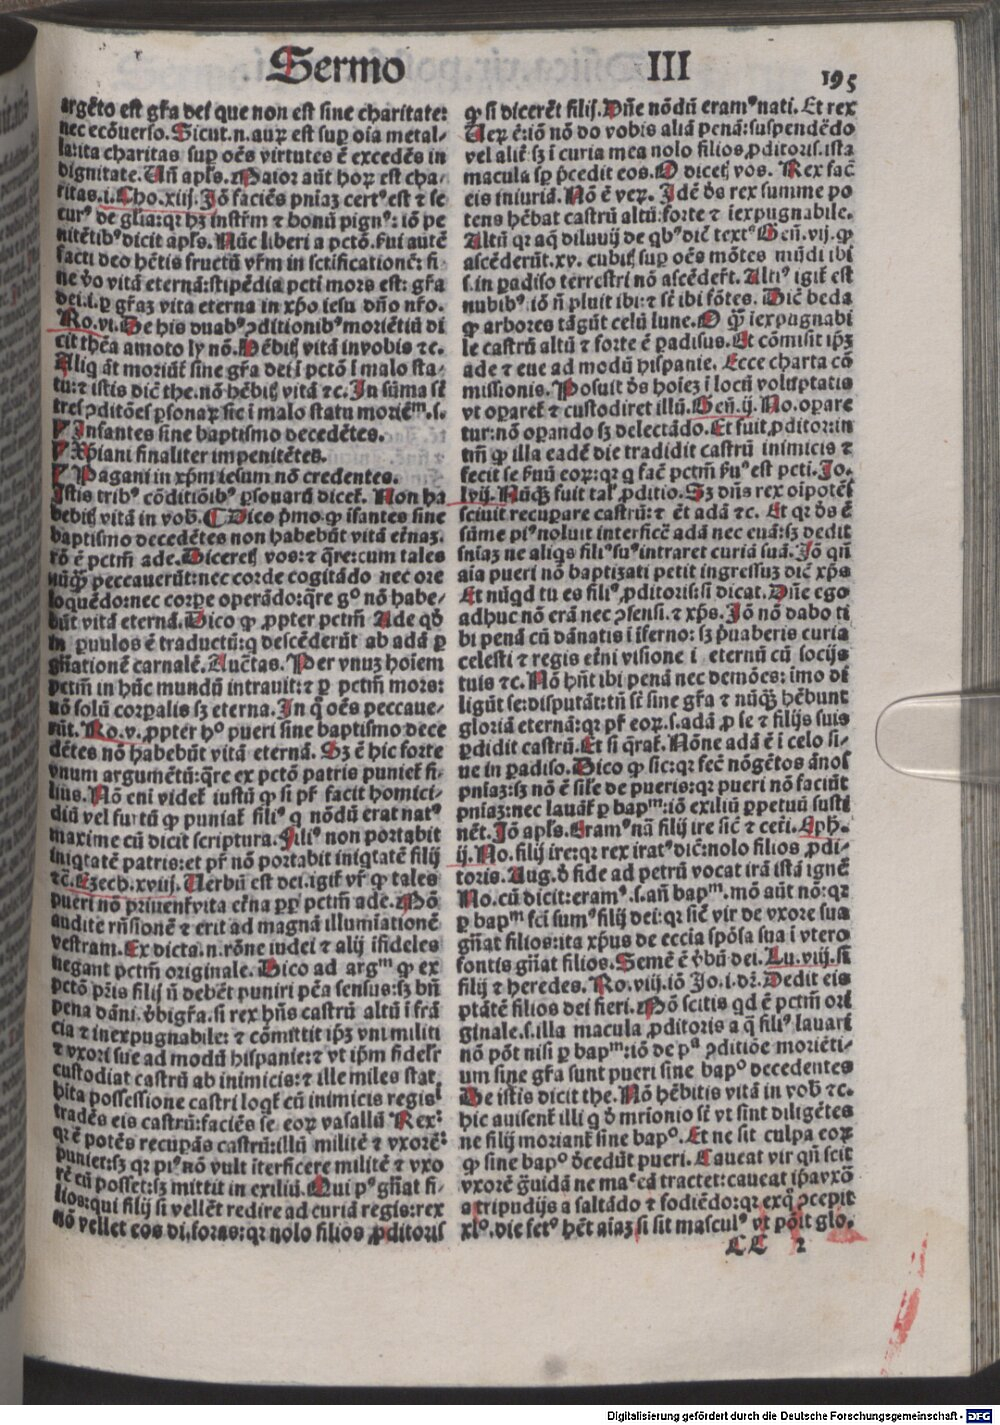 Sermo III
195
argēto est gr̄a dei que non est sine charitate:
nec ecōuerso. Sicut .n. aurꝫ est sup oīa metal-
la: ita charitas sup oēs virtutes ē excedēs in
dignitate. Uñ apl̄s. Maior aūt hoꝝ est cha-
ritas .i. Cho. xiij. Jō faciēs pn̄iaz certꝰ est ⁊ se
curꝰ de gl̄ia: qꝛ hꝫ instr̄m ⁊ bonū pignꝰ: iō pe
nitētibꝰ dicit apl̄s. Nūc liberi a pctō. fui autē
facti deo hētis fructū vr̄m in sctificationē: fi-
ne ꝟo vitā eternā: stipēdia peti mors est: gr̄a
dei .i. ꝑ gr̄az vita eterna in xp̄o iesu dn̄o nr̄o.
Ro. vi. De his duabꝰ ꝯditionibꝰ moriētiū di
cit thēa amoto ly nō. Hēbitꝭ vitā in vobis ⁊c.
Aliq āt moriūt̄ sine gr̄a dei ī pctō ī malo sta-
tu: ⁊ istis dic̄ the. nō hēbitꝭ vitā ⁊c. In sūma st̄
tres ꝯditōes ꝑsonaꝝ sic ī malo statu moriēᵐ .s.
¶ Infantes sine baptismo decedētes.
¶ Xp̄iani finaliter impenitētes.
¶ Pagani in xp̄m iesum nō credentes.
Istis tribꝰ cōditiōibꝰ ꝑsonarū dicet̄. Non ha
bebitꝭ vitā in vob̄. ¶ Dico p̄mo ꝙ ifantes sine
baptismo decedētes non habebūt vitā et̄naz.
rō ē pctm̄ ade. Diceretꝭ vos: ⁊ q̄re: cum tales
nūꝙ̄ peccauerūt: nec corde cogitādo nec ore
loquēdo: nec corꝑe operādo: q̄re gᵒ nō habe-
būt vitā eternā. Dico ꝙ ꝓpter pctm̄ Ade qd̄
in ꝑuulos ē traductū: q̄ descēderūt ab adā ꝑ
gn̄ationē carnalē. Auc̄tas. Per vnuz hoīem
pctm̄ in hūc mundū intrauit: ⁊ ꝑ pctm̄ mors:
nō solū corꝑalis sꝫ eterna. In q̄ oēs peccaue-
rūt. Ro. v. ꝓpter hᵒ pueri sine baptismo dece
dētes nō habebūt vitā eternā. Sꝫ ē hic forte
vnum argumētū: q̄re ex pctō patris puniet̄ fi-
lius. Nō eni videt̄ iustū ꝙ si pr̄ facit homici-
diū vel furtū ꝙ puniat̄ filiꝰ q nōdū erat natꝰ
maxime cū dicit scriptura. Filiꝰ non portabit
iniqtatē patris: et pr̄ nō portabit iniqtatē filij
⁊c̄. Ezech. xviij. Uerbū est dei. igit̄ vr̄ ꝙ tales
pueri nō priuent̄ vita et̄na ꝓp̄ pctm̄ ade. Pō
audite rn̄sionē ⁊ erit ad magnā illumiationē
vestram. Ex dicta .n. rōne iudei ⁊ alij ifideles
negant pctm̄ originale. Dico ad argᵐ ꝙ ex
pctō pr̄is filij n̄ debēt puniri pēa sensus: sꝫ bn̄
pena dāni. ꝟbigr̄a. si rex hn̄s castrū altū ī frā
cia ⁊ inexpugnabile: ⁊ cōmittit ip̄ꝫ vni militi
⁊ vxori sue ad modū hispanie: ⁊ vt ip̄m fidelr̄
custodiat castrū ab inimicis: ⁊ ille miles stat
hita possessione castri loqt̄ cū inimicis regis
tradēs eis castrū: faciēs se eoꝝ vasallū Rex
qꝛ ē potēs recuꝑās castrū: illū militē ⁊ vxorē
puniet: sꝫ qꝛ piꝰ nō vult īterficere militē ⁊ vxo
rē cū posset: sꝫ mittit in exiliū. Qui pꝰ gn̄at fi-
lios: qui filij si vellēt redire ad curiā regis: rex
nō vellet eos di. foras: qꝛ nolo filios ꝓditoris
ꝙ si dicerēt filij. Dn̄e nōdū eramꝰ nati. Et rex
Ueꝝ ē: iō nō do vobis aliā penā: suspendēdo
vel alit̄ sꝫ ī curia mea nolo filios ꝓditoris. ista
macula sꝑ p̄cedit eos. O dicetꝭ vos. Rex fac̄
eis iniuriā. Nō ē veꝝ. Idē d̄s rex summe po
tens hēbat castrū altū: forte ⁊ īexpugnabile.
Altū qꝛ aq̄ diluuij de qbꝰ dic̄ textꝰ Gen̄. vij. ꝙ
ascēderūt .xv. cubitꝭ sup oēs mōtes mūdi ibi
s. in padiso terrestri nō ascēder̄t. Altiꝰ igit̄ est
nubibꝰ: iō n̄ pluit ibi: ⁊ st̄ ibi fōtes. Dic̄ beda
ꝙ arbores tāgūt celū lune. O ꝙ̄ īexpugnabi
le castrū altū ⁊ forte ē padisus. Et cōmisit ip̄ꝫ
ade ⁊ eue ad modū hispanie. Ecce charta cō
missionis. Posuit d̄s hoīez ī locū voluptatis
vt oparet̄ ⁊ custodiret illū. Gen̄. ij. No. opare
tur: nō opando sꝫ delectādo. Et fuit ꝓditor: in
tm̄ ꝙ illa eadē die tradidit castrū inimicis ⁊
fecit se ẜuū eoꝝ: qꝛ q fac̄ pctm̄ ẜuꝰ est pcti. Jo.
lvij. Nūꝙ̄ fuit tal̄ ꝓditio. Sꝫ dn̄s rex oīpotēs
sciuit recuꝑare castrū: ⁊ ēt adā ⁊c. Et qꝛ d̄s ē
sūme piꝰ noluit interficē adā nec euā: sꝫ dedit
sn̄iaz ne aliqs filiꝰ suꝰ intraret curiā suā. Jō qn̄
aīa pueri nō baptizati petit ingressuz dic̄ xp̄s
Et nūqd tu es filiꝰ ꝓditoris: si dicat. Dn̄e ego
adhuc nō erā nec ꝯsensi. ⁊ xp̄s. Jō nō dabo ti
bi penā cū dānatis ī īferno: sꝫ p̄uaberis curia
celesti ⁊ regis et̄ni visione ī eternū cū socijs
tuis ⁊c. Nō hn̄t ibi penā nec demōes: imo di
ligūt se: disputāt: tn̄ st̄ sine gr̄a ⁊ nūꝙ̄ hēbunt
gloriā eternā: qꝛ pr̄ eoꝝ .s. adā ꝓ se ⁊ filijs suis
ꝑdidit castrū. Et si q̄rat̄. Nōne adā ē ī celo si-
ue in padiso. Dico ꝙ sic: qꝛ fec̄ nōgētos ānos
pn̄iaz: sꝫ nō ē sil̄e de pueris: qꝛ pueri nō faciūt
pn̄iaz: nec lauāt̄ ꝑ bapᵐ: iō exiliū ꝑpetuū susti
nēt. Jō apl̄s. Eramꝰ nā filij ire sic̄ ⁊ cet̄i. Eph̄.
ij. No. filij ire: qꝛ rex iratꝰ dic̄: nolo filios ꝓdi-
toris. Aug. d̄ fide ad petrū vocat irā istā ignē
No. cū dicit: eramꝰ .s. an̄ bapᵐ. mō aūt nō: qꝛ
ꝑ bapᵐ fc̄i sumꝰ filij dei: qꝛ sic̄ vir de vxore sua
gn̄at filios: ita xp̄us de eccia spōsa sua ī vtero
fontis gn̄at filios. Semē ē ꝟbū dei. Lu. viij. si
filij ⁊ heredes. Ro. viij. iō Jo. i. dꝛ. Dedit eis
ptātē filios dei fieri. Nō scitis qd ē pctm̄ ori
ginale .s. illa macula ꝓditoris a q̄ filiꝰ lauari
nō pōt nisi ꝑ bapᵐ: iō de pᵃ ꝯditiōe moriēti-
um sine gr̄a sunt pueri sine bapᵒ decedentes
De istis dicit the. Nō hēbitis vitā in vob̄ ⁊c.
hic auisent̄ illi q d̄ mr̄ionio st̄ vt sint diligētes
ne filij moriant̄ sine bapᵒ. Et ne sit culpa eoꝝ
ꝙ sine bapᵒ d̄cedūt pueri. Caueat vir qn̄ scit
vxorē ḡuidā ne maᵉ cā tractet: caueat ip̄a vxō
a tripudijs a saltādo ⁊ fodiēdo: qꝛ exq̄ ꝯcepit
xlᵒ. die fetꝰ hēt aīaz si sit masculꝰ vt pōit glo.
CC 2
Digitalisierung gefördert durch die Deutsche Forschungsgemeinschaft - DFG